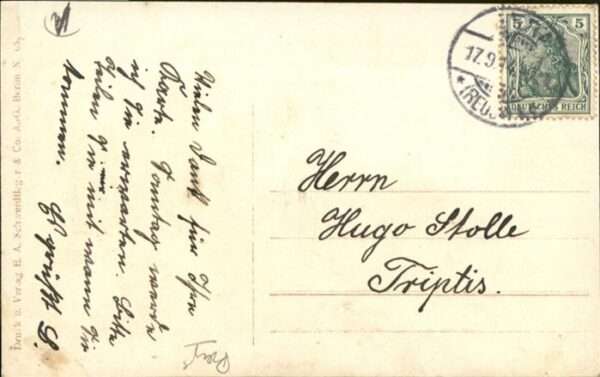 Vielen Dank für Ihre
Karte. Sonntag werde
ich Sie erwarten. Bitte
teilen Sie mit wann Sie
kommen.
Es grüßt S.
Herrn
Hugo Stolle
Triptis.
5 5
DEUTSCHES REICH
17.9.
(REUSS
Druck u. Verlag H. A.
& Co. A.-G. Berlin N.